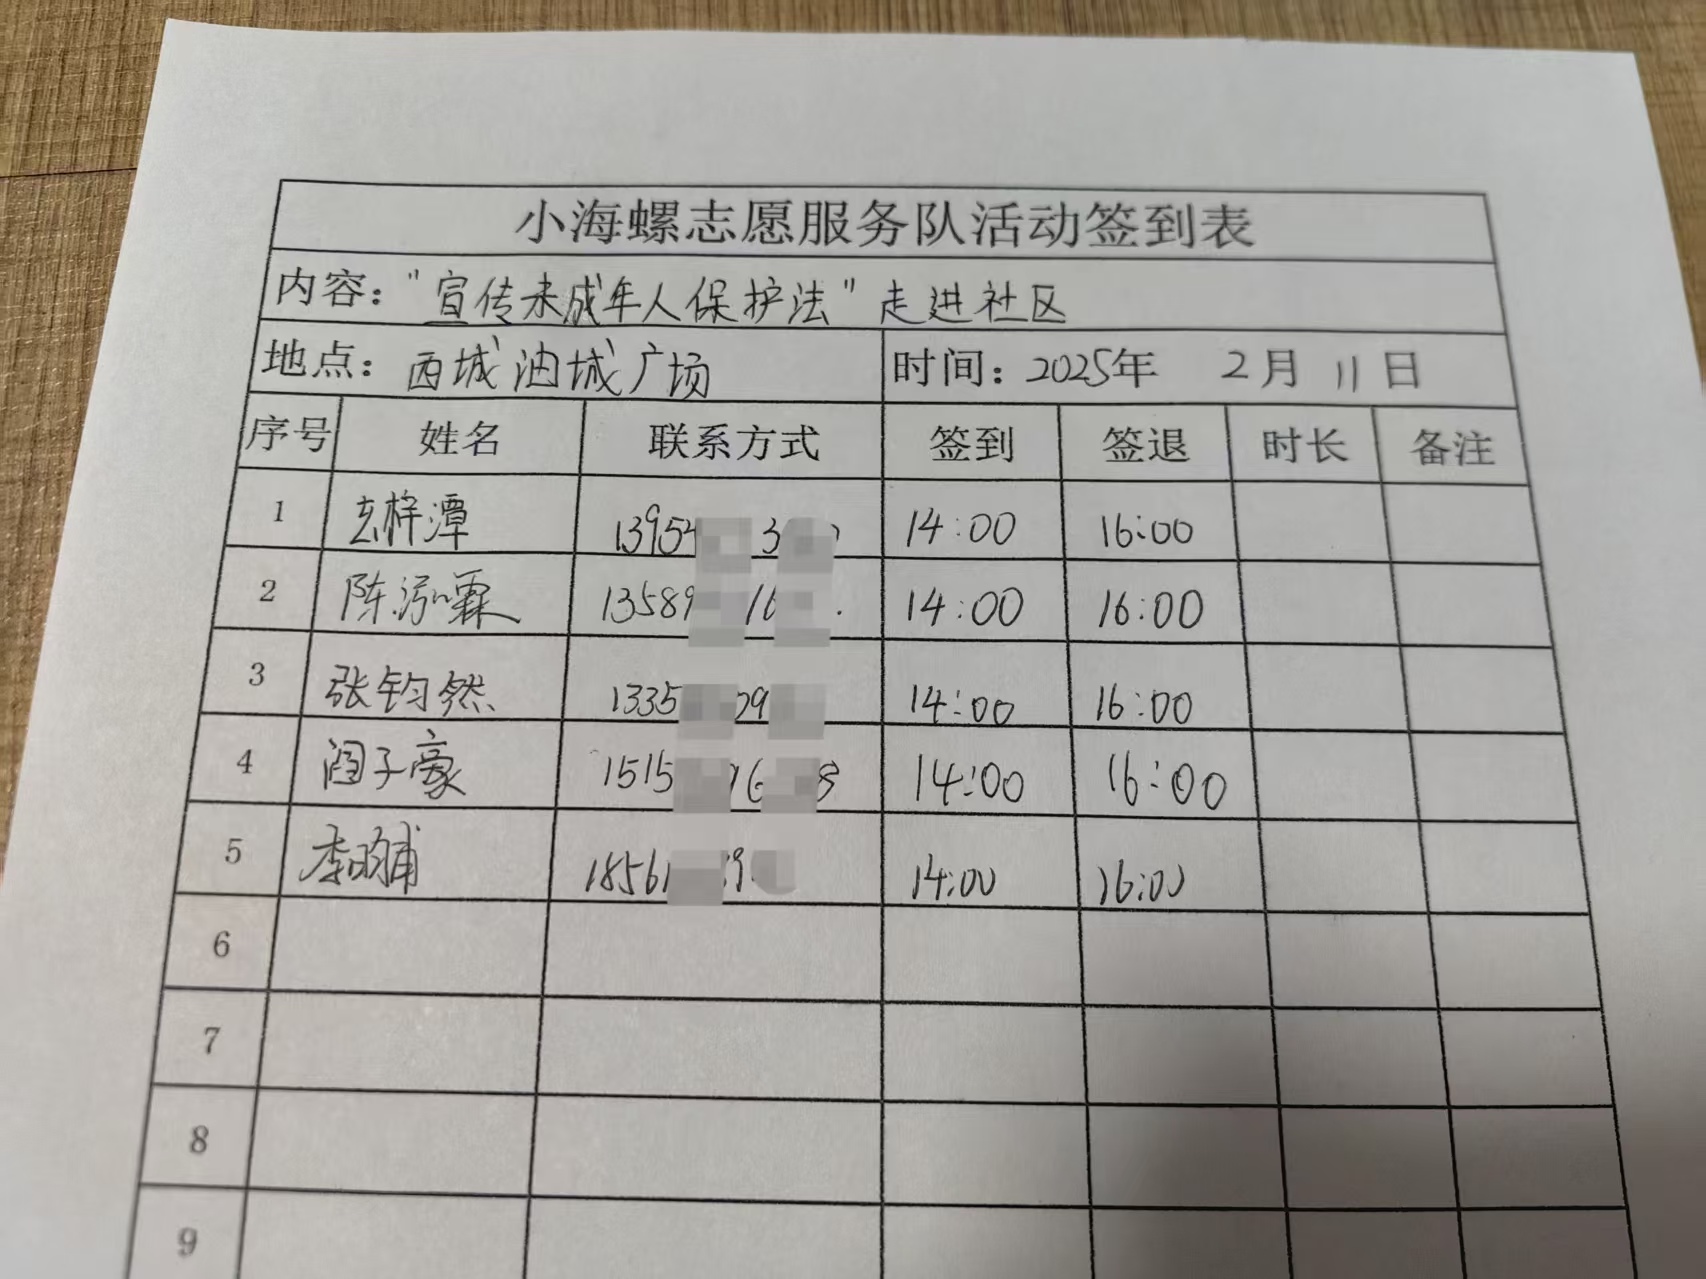 小海螺志愿服务队活动签到表
内容："宣传未成年人保护法"走进社区
地点：西城油城广场 时间：2025年 2月 11日
序号 姓名 联系方式 签到 签退 时长 备注
1 玄梓潭 13954 3 14:00 16:00
2 陈泓霖 13589 16 14:00 16:00
3 张钧然 1335 09 14:00 16:00
4 阎子豪 1515 16 8 14:00 16:00
5 李 1856 9 14:00 16:00
6
7
8
9